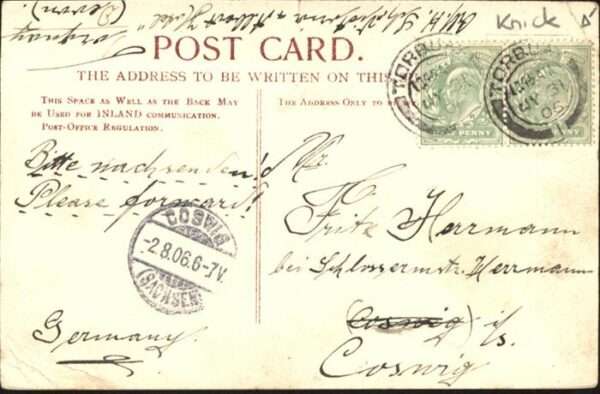 Knick
Albert Hotel
Torquay
(Devon)
POST CARD.
THE ADDRESS TO BE WRITTEN ON THIS
THIS SPACE AS WELL AS THE BACK MAY
BE USED FOR INLAND COMMUNICATION.
POST-OFFICE REGULATION.
THE ADDRESS ONLY TO
TORQUAY
JY 31
06
TORQUAY
JY 31
06
PENNY
PENNY
Bitte nachsenden!
Please forward!
COSWIG
-2.8.06.6-7V.
(SACHSEN)
Germany.
Mr.
Fritz Herrmann
bei Schlossermstr. Herrmann
(Coswig) i/s.
Coswig